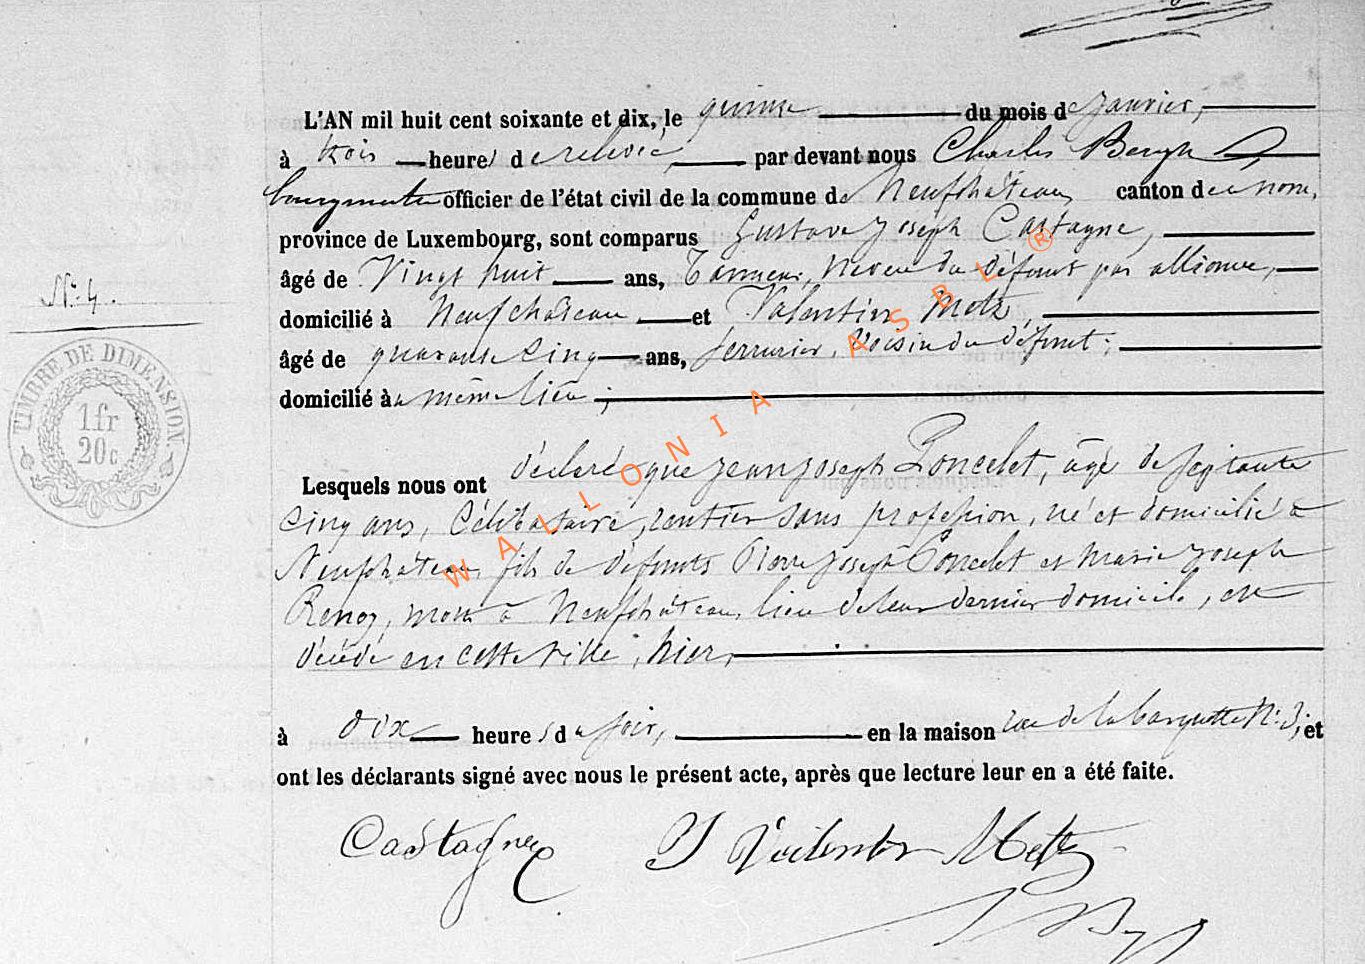 L'AN mil huit cent soixante et dix, le quinze du mois de Janvier,
à trois heures de relevée, par devant nous Charles Bergh
bourgmestre officier de l'état civil de la commune de Neufchâteau canton de ce nom,
province de Luxembourg, sont comparus Gustave Joseph Castagne,
âgé de Vingt huit ans, Tanneur, Neveu du défunt par alliance,
N° 4.
domicilié à Neufchâteau et Valentin Motz,
âgé de quarante cinq ans, serrurier, Voisin du défunt;
domicilié au même lieu;
TIMBRE DE DIMENSION.
1 fr
20 c
Lesquels nous ont déclaré que Jean Joseph Poncelet, âgé de septante
cinq ans, Célibataire, rentier sans profession, né et domicilié à
Neufchâteau, fils de défunts Pierre Joseph Poncelet et Marie Joseph
morts à Neufchâteau, lieu de leur dernier domicile, est
décédé en cette ville, hier,
à dix heures du soir, en la maison rue de la N° 3; et
ont les déclarants signé avec nous le présent acte, après que lecture leur en a été faite.
Castagne Valentin
WALLONIA ASBL ®